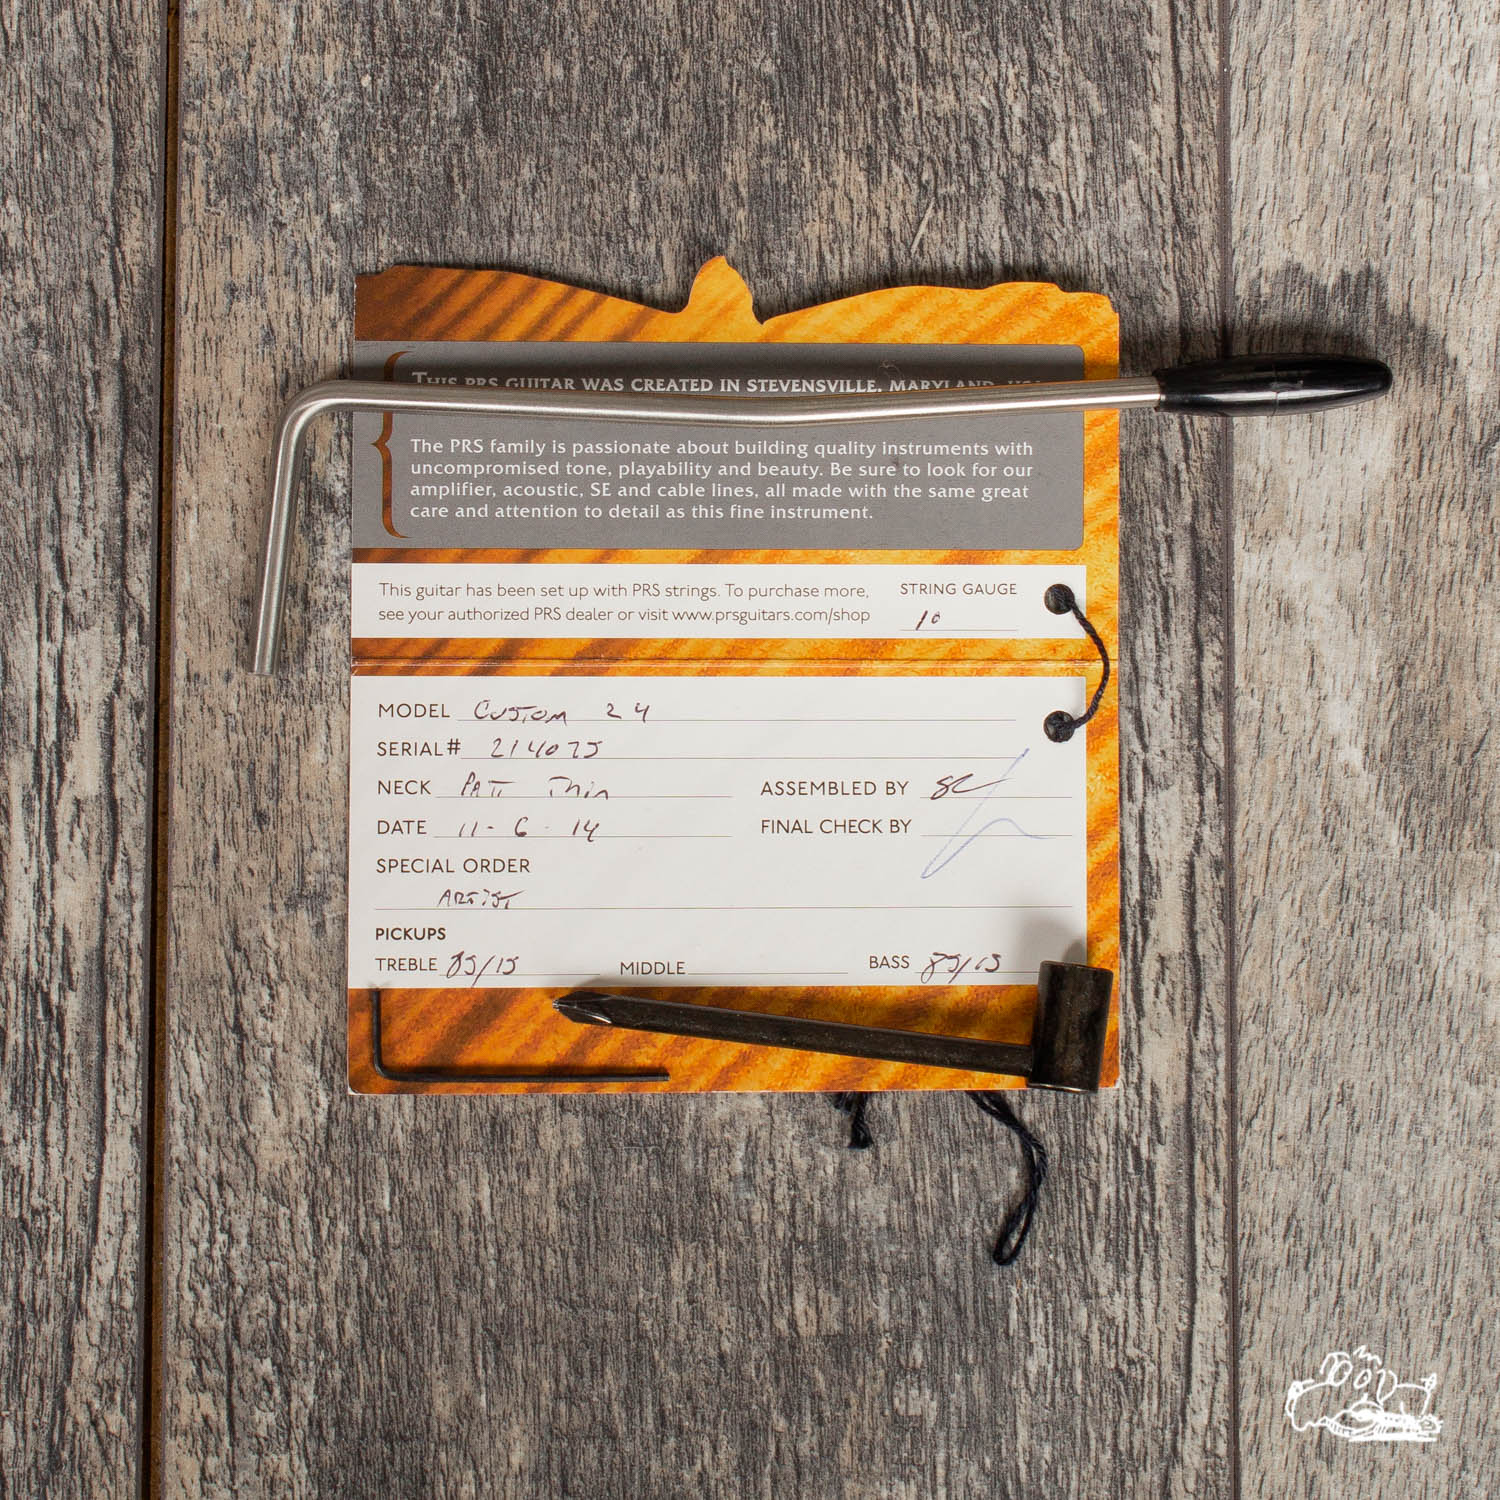 THIS PRS GUITAR WAS CREATED IN STEVENSVILLE, MARYLAND, USA
The PRS family is passionate about building quality instruments with
uncompromised tone, playability and beauty. Be sure to look for our
amplifier, acoustic, SE and cable lines, all made with the same great
care and attention to detail as this fine instrument.
This guitar has been set up with PRS strings. To purchase more,
see your authorized PRS dealer or visit www.prsguitars.com/shop
STRING GAUGE
10
MODEL Custom 24
SERIAL# 214075
NECK PATT Thin
ASSEMBLED BY
DATE 11-6-14
FINAL CHECK BY
SPECIAL ORDER
ARTIST
PICKUPS
TREBLE 85/15 MIDDLE BASS 85/15